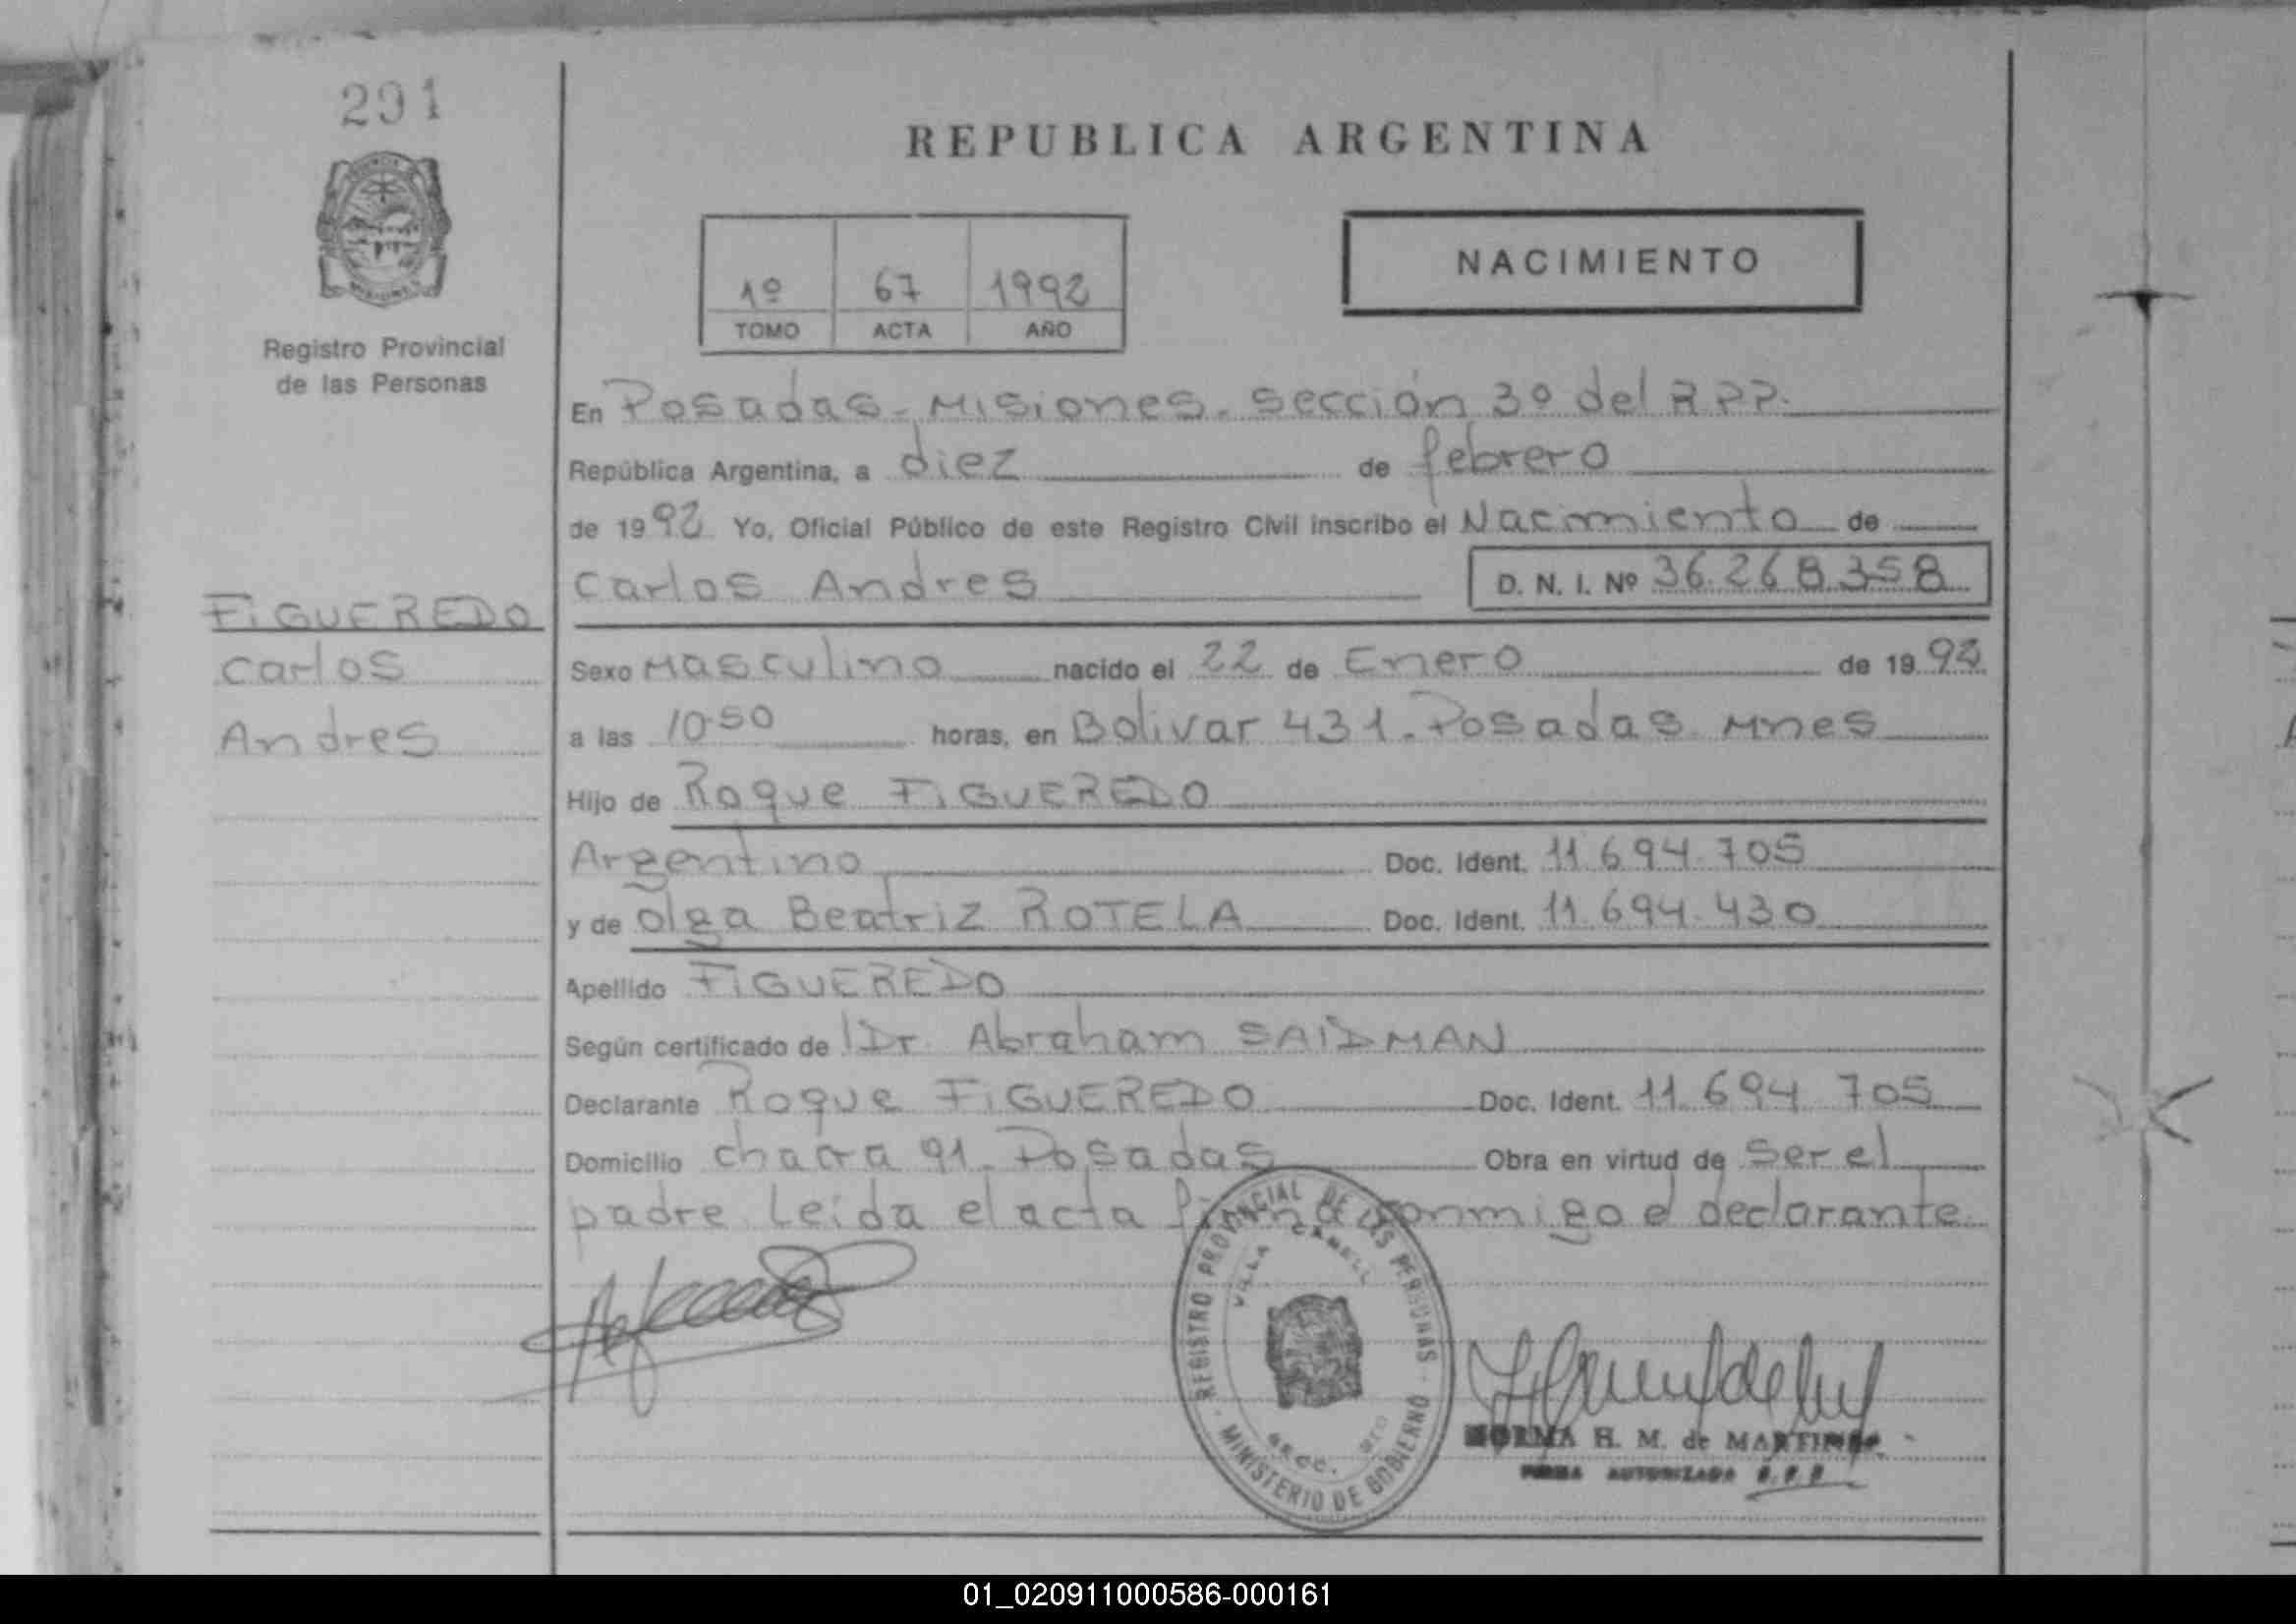 291
REPUBLICA ARGENTINA
NACIMIENTO
1º 67 1992
TOMO ACTA AÑO
Registro Provincial
de las Personas
En Posadas - Misiones - Sección 3º del R.P.P.
República Argentina, a diez de febrero
de 1992 Yo, Oficial Público de este Registro Civil inscribo el Nacimiento de
Carlos Andres D. N. I. Nº 36.268.358
FIGUEREDO
Carlos
Andres
Sexo Masculino nacido el 22 de Enero de 1992
a las 10·50 horas, en Bolivar 431 - Posadas Mnes
Hijo de Roque FIGUEREDO
Argentino Doc. Ident. 11.694.705
y de Olga Beatriz ROTELA Doc. Ident. 11.694.430
Apellido FIGUEREDO
Según certificado de Dr. Abraham SAIDMAN
Declarante Roque FIGUEREDO Doc. Ident. 11.694.705
Domicilio chacra 91 - Posadas Obra en virtud de ser el
padre Leída el acta firma conmigo el declarante
REGISTRO PROVINCIAL DE LAS PERSONAS
VILLA CABELL
MINISTERIO DE GOBIERNO
NORMA H. M. de MARTINEZ
FIRMA AUTORIZADA R.P.P.
01_020911000586-000161